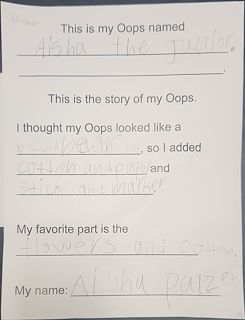 Aisha
This is my Oops named
Aisha the junior.
This is the story of my Oops.
I thought my Oops looked like a
, so I added
cotton and and
stick and marker.
My favorite part is the
flowers and cotton.
My name: Aisha parzet